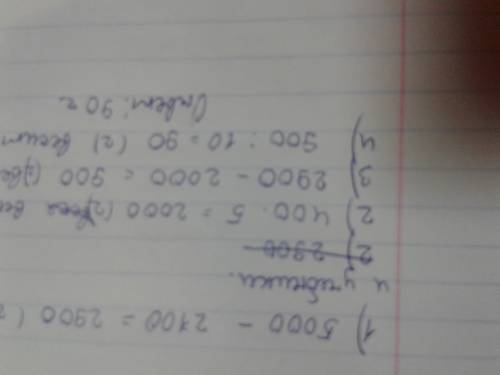 1) 5000 - 2100 = 2900 (г
и учебники.
2) 2900
2) 400 . 5 = 2000 (г) все
3) 2900 - 2000 = 900 (г)
4) 900 : 10 = 90 (г) весит
Ответ: 90 г.